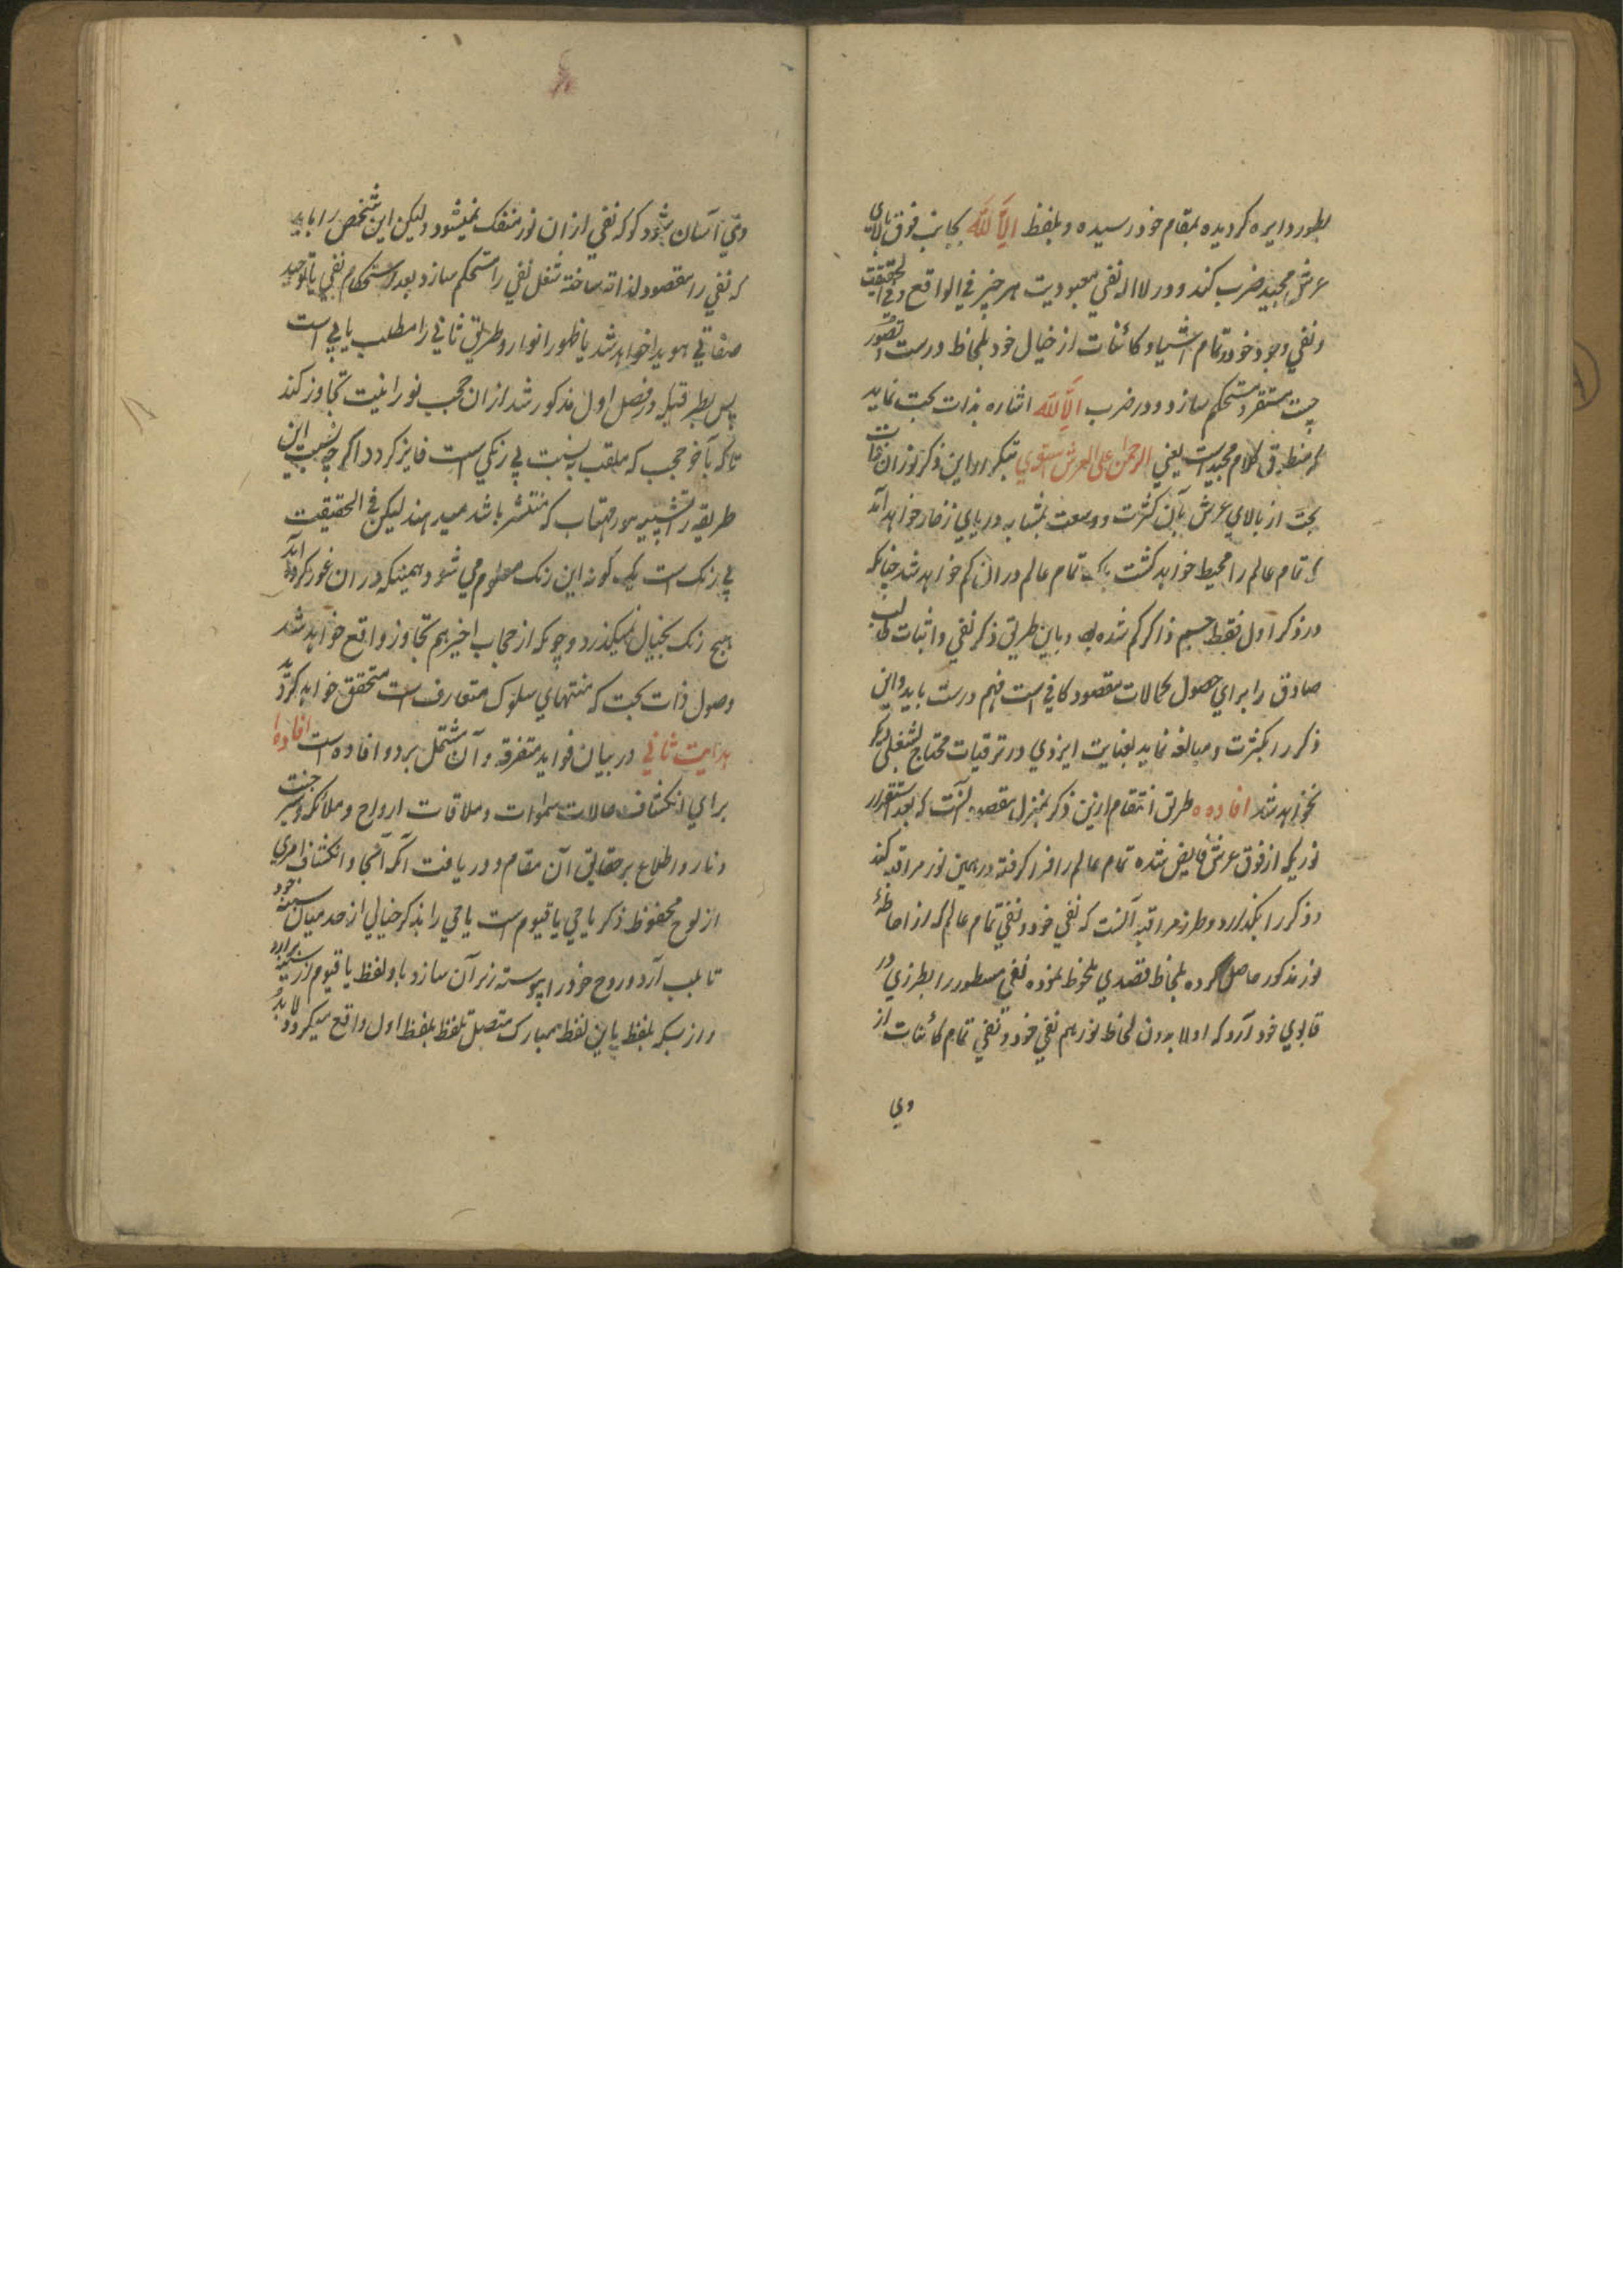 بطور دایره کردیده بمقام خود رسیده و بلفظ الا الله بجانب فوق بالای
عرش مجید ضرب کند و در لا اله نفی معبودیت هر چیز فی الواقع و فی الحقیقت
و نفی وجود خود و تمام اشیا و کائنات از خیال خود بلحاظ درست تصور
چست مستقر و مستحکم سازد و در ضرب الا الله اشاره بذات بحت نماید
که منطوق کلام مجید است یعنی الرحمن علی العرش استوی بتکرار این ذکر نوران ذات
بحت از بالای عرش بآن کثرت و وسعت بمشابه دریای زخار خواهد آمد
که تمام عالم را محیط خواهد کشت بلکه تمام عالم دران کم خواهد شد چنانکه
در ذکر اول فقط جسم ذاکر کم شده بود و باین طریق ذکر نفی و اثبات طالب
صادق را برای حصول کمالات مقصود کافی است فهم درست باید و این
ذکر را بکثرت و مبالغه نماید بعنایت ایزدی در ترقیات محتاج بشغلی دیکر
نخواهد شد افاده ه طریق انتقام ازین ذکر بمنزل مقصود آنست که بعد استقرار
نوریکه از فوق عرش فایض شده تمام عالم را فرا کرفته در همین نور مراقبه کند
و ذکر را بکذارد و طرز مراقبه آنست که نفی خود و نفی تمام عالم که از احاطهٔ
نور مذکور حاصل کرده بلحاظ قصدی ملحوظ نموده نفی مسطور را بطرزی در
قابوی خود آرد که اولا بدون لحاظ نور هم نفی خود و نفی تمام کائنات از
وی
وی آسان شود کو که نفی ازان نور منفک نمیشود ولیکن این شخص را باید
که نفی را مقصود لذاته ساخته شغل نفی را مستحکم سازد بعد استحکام نفی یا توحید
صفاتی هویدا خواهد شد یا ظهور انوار و طریق ثانی را مطلب یابی است
پس بطریقیکه در فصل اول مذکور شد ازان حجب نورانیت تجاوز کند
تا که بآخر حجب که ملقب به نسبت بی رنکی است فایز کردد اکر چه نسبت این
طریقه را تشبیه بنور مهتاب که منتشر باشد میدهند لیکن فی الحقیقت
بی رنک است یک کونه این رنک معلوم می شود و همینکه دران غور کرده آید
هیچ رنک بخیال نمیکذرد و چونکه از حجاب اخیر هم تجاوز واقع خواهد شد
وصول ذات بحت که منتهای سلوک متعارف است متحقق خواهد کردید
هدایت ثانی در بیان فواید متفرقه و آن مشتمل بر دو افاده است افاده ۱
برای انکشاف حالات سموات و ملاقات ارواح و ملائکه و سیر جنت
و نار و اطلاع بر حقایق آن مقام و دریافت امکنه آنجا و انکشاف امری
از لوح محفوظ ذکر یا حی یا قیوم است یا حی را بذکر خیالی از حد میان سینه خود
تا بلب آرد و روح خود را پیوسته زیر آن سازد باو لفظ یا قیوم از سینه برارد
و از بسکه بلفظ یا این لفظ مبارک متصل تلفظ بلفظ اول واقع میکردد لابد